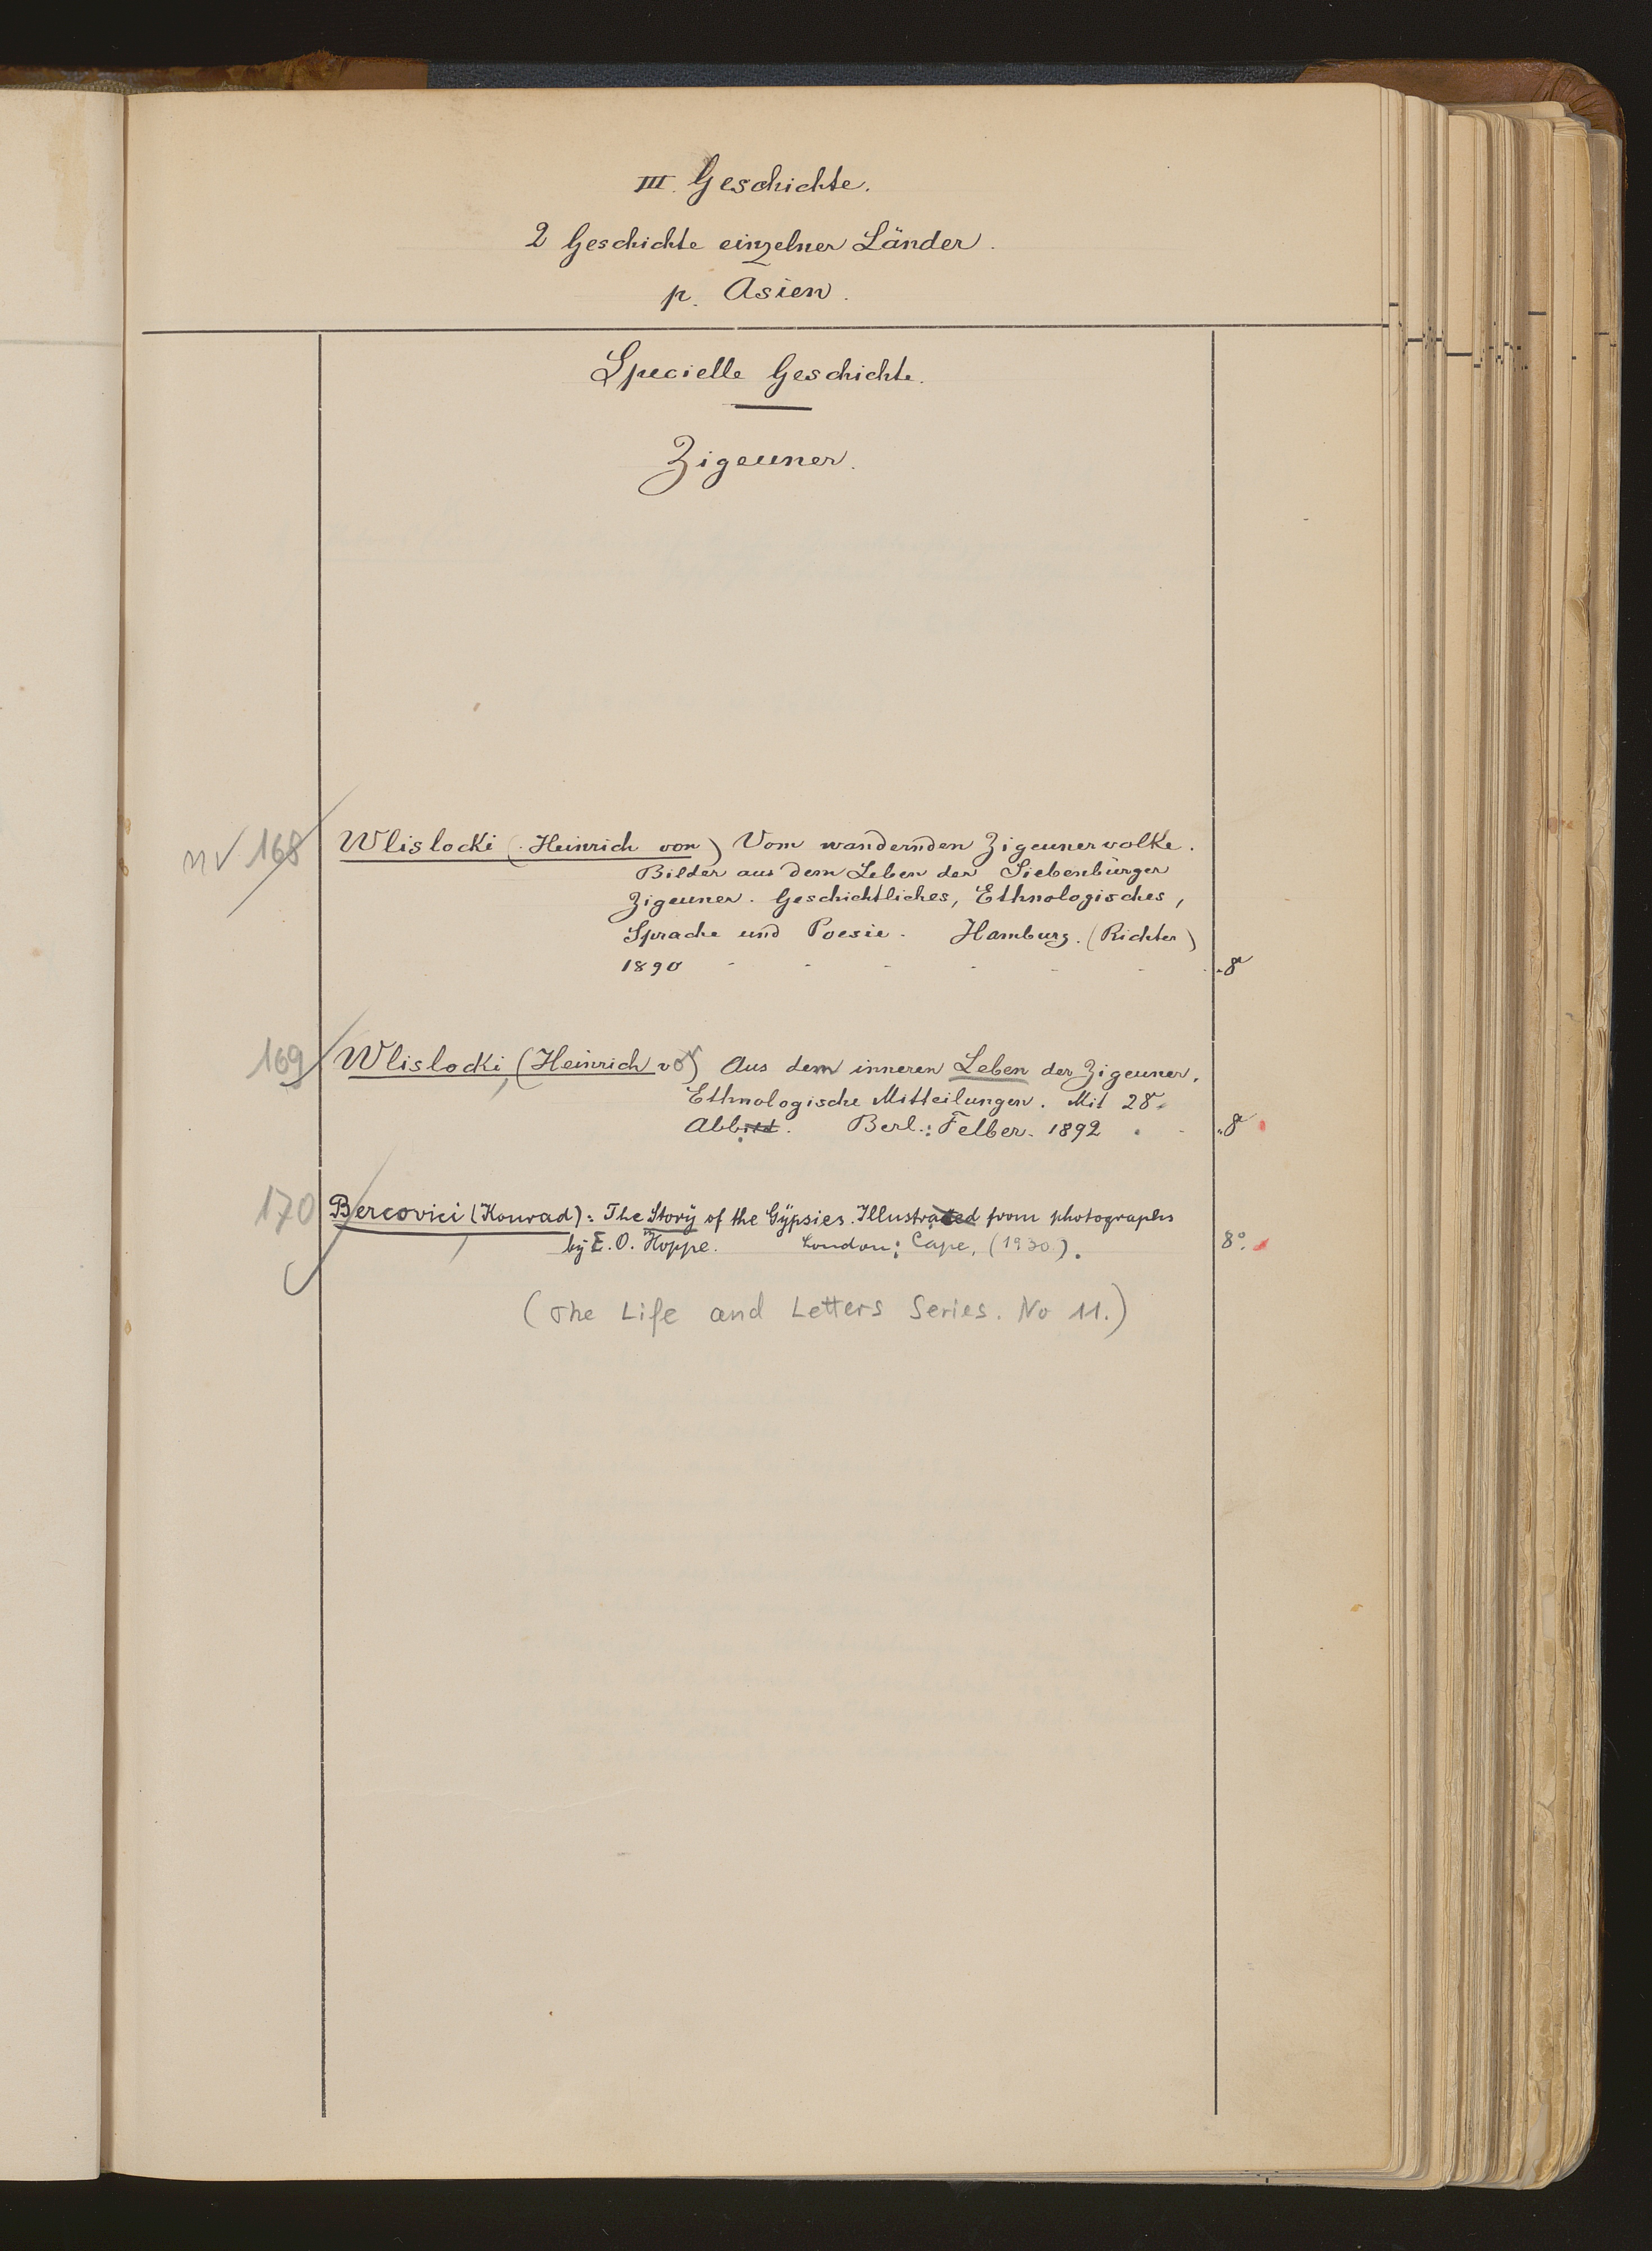 III. Geschichte.
2 Geschichte einzelner Länder.
p. Asien.
Specielle Geschichte.
Zigeuner.
nv 168 Wlislocki (Heinrich von) Vom wandernden Zigeunervolke.
Bilder aus dem Leben der Siebenbürger
Zigeuner. Geschichtliches, Ethnologisches,
Sprache und Poesie. Hamburg. (Richter)
1890 - - - - - - - 8°
169 Wlislocki, (Heinrich v.) Aus dem inneren Leben der Zigeuner.
Ethnologische Mitteilungen. Mit 28
Abbild. Berl.: Felber. 1892 . - 8°
170 Bercovici (Konrad): The Story of the Gypsies. Illustrated from photographs
by E. O. Hoppe. London: Cape, (1930). 8°.
(The Life and Letters Series. No 11.)